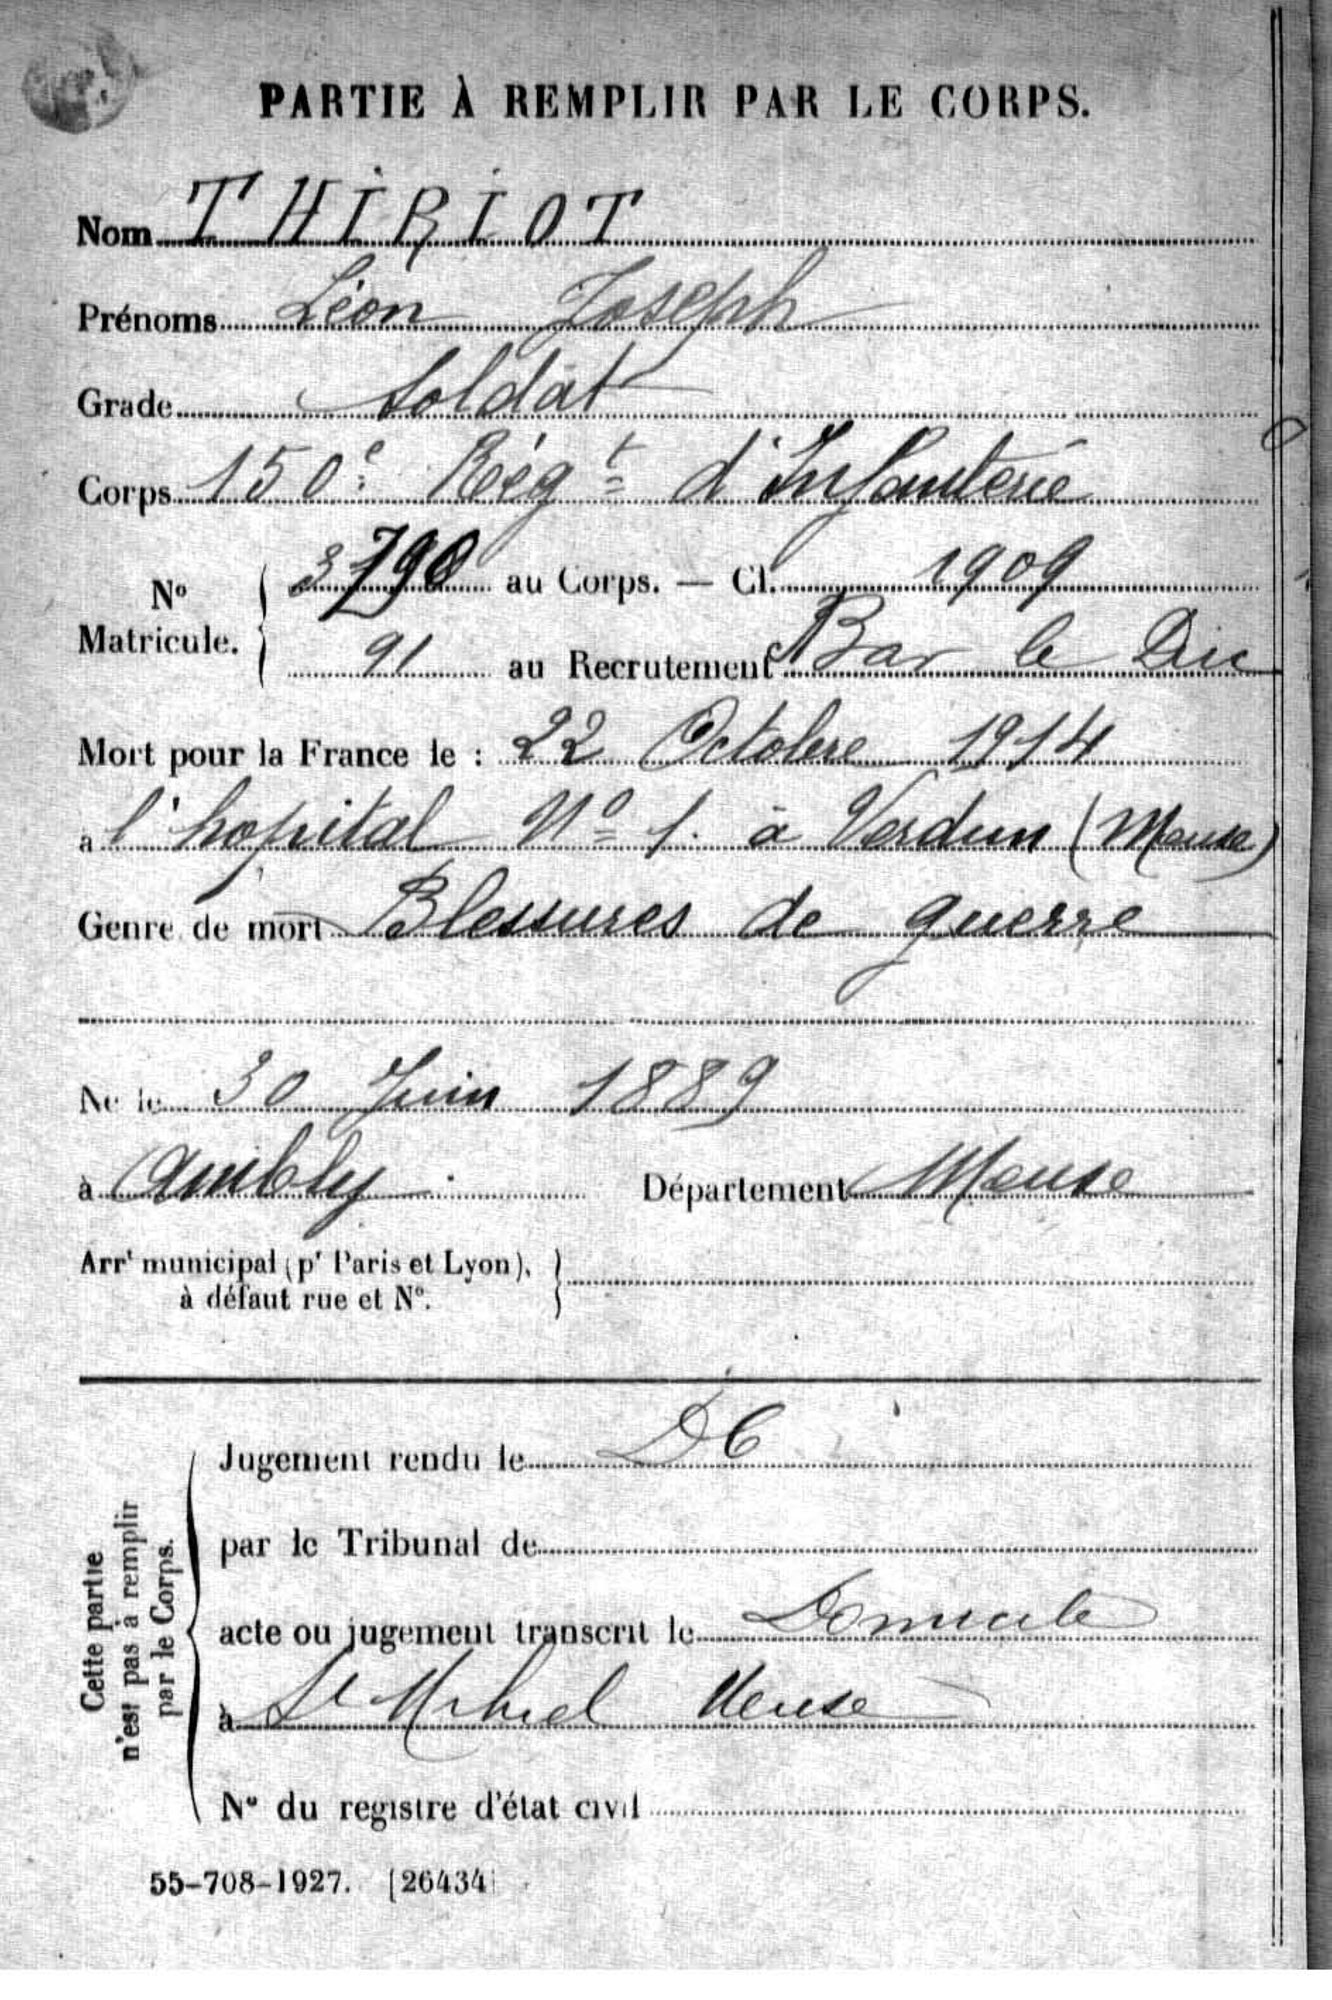 PARTIE À REMPLIR PAR LE CORPS.
Nom THIRIOT
Prénoms Léon Joseph
Grade Soldat
Corps 150e Régt d'Infanterie
No Matricule. { 3790 au Corps. — Cl. 1909
91 au Recrutement Bar le Duc
Mort pour la France le : 22 Octobre 1914
à l'hopital No 1. à Verdun (Meuse)
Genre de mort Blessures de guerre
Né le 30 Juin 1889
à Ambly Département Meuse
Arrt municipal (pr Paris et Lyon), }
à défaut rue et No.
Cette partie n'est pas à remplir par le Corps.
Jugement rendu le DC
par le Tribunal de
acte ou jugement transcrit le Domicile
à St Mihiel Meuse
No du registre d'état civil
55-708-1927. [26434]